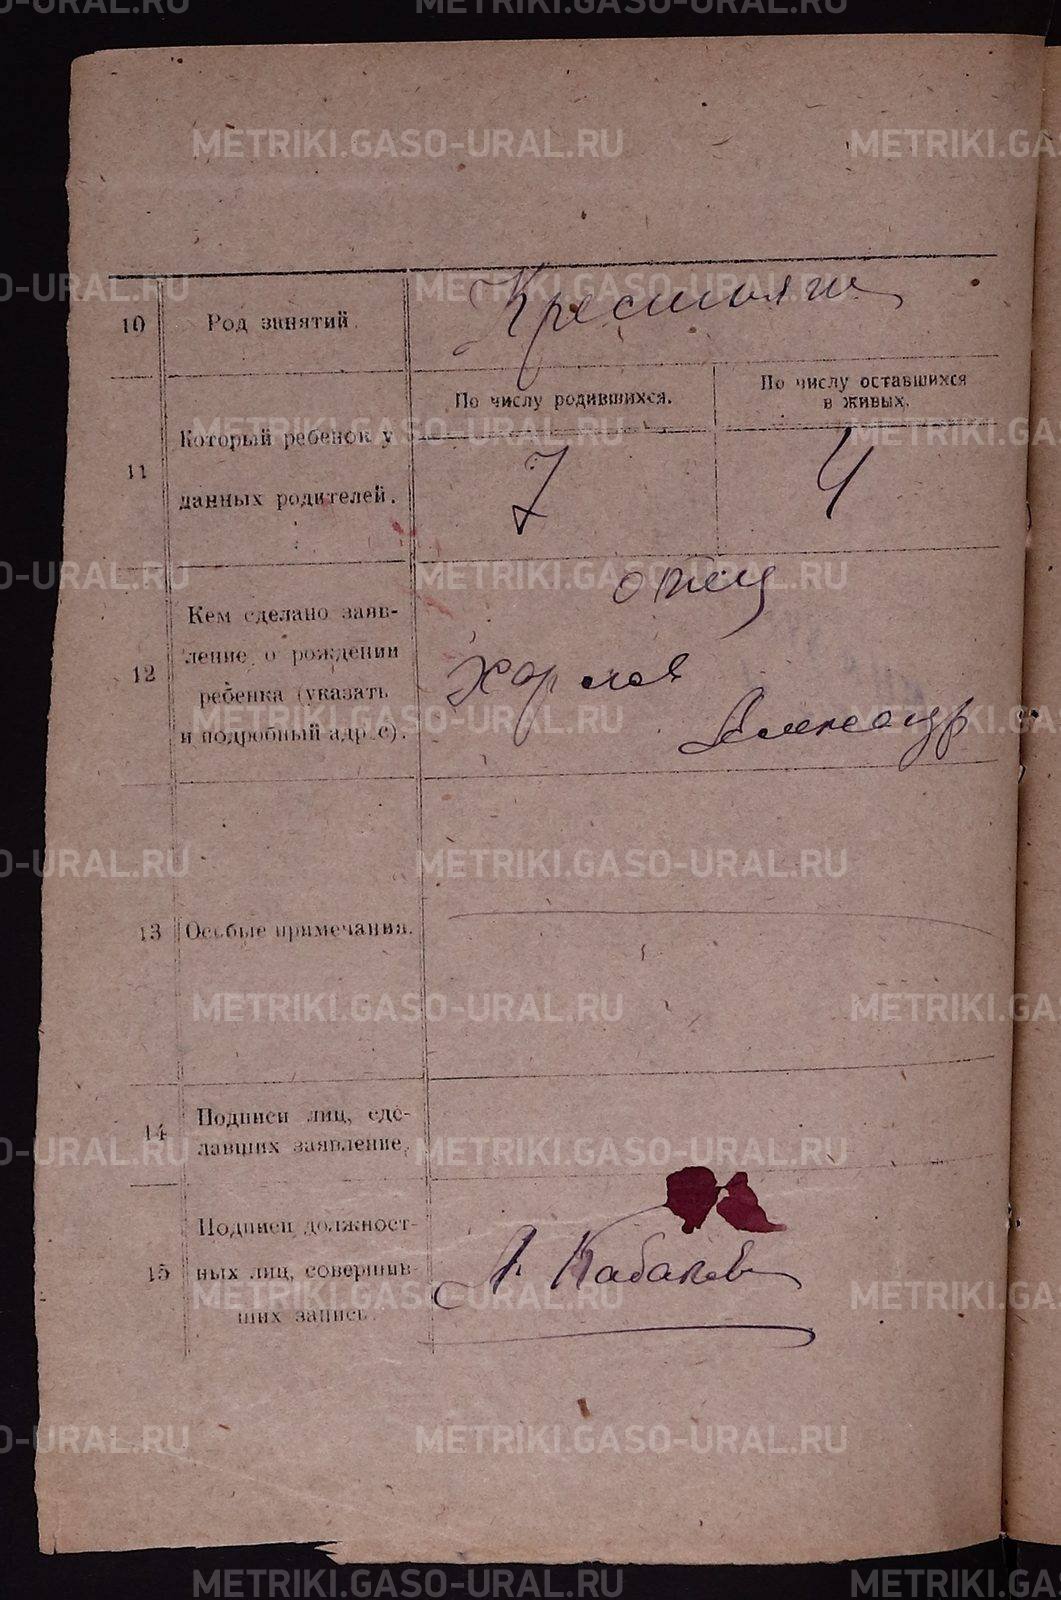 10 Род занятий. Крестьяне
11 Который ребенок у данных родителей.
По числу родившихся. По числу оставшихся
в живых.
7 4
12 Кем сделано заяв-
ление о рождении
ребенка (указать
и подробный адрес).
отец
Александр
13 Особые примечания.
14 Подписи лиц, сде-
лавших заявление.
15 Подписи должност-
ных лиц, совершив-
ших запись.
Кабаков
METRIKI.GASO-URAL.RU